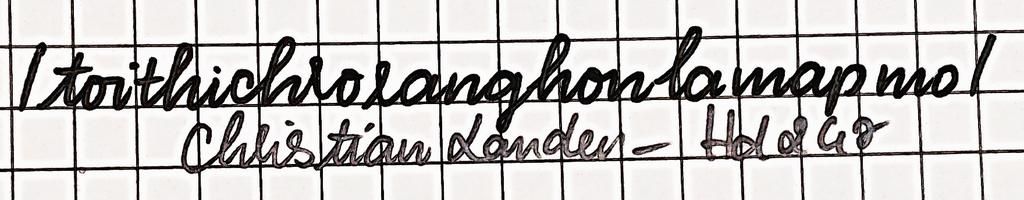 /toithichrosanghonlamapmo/
Christian Landen –